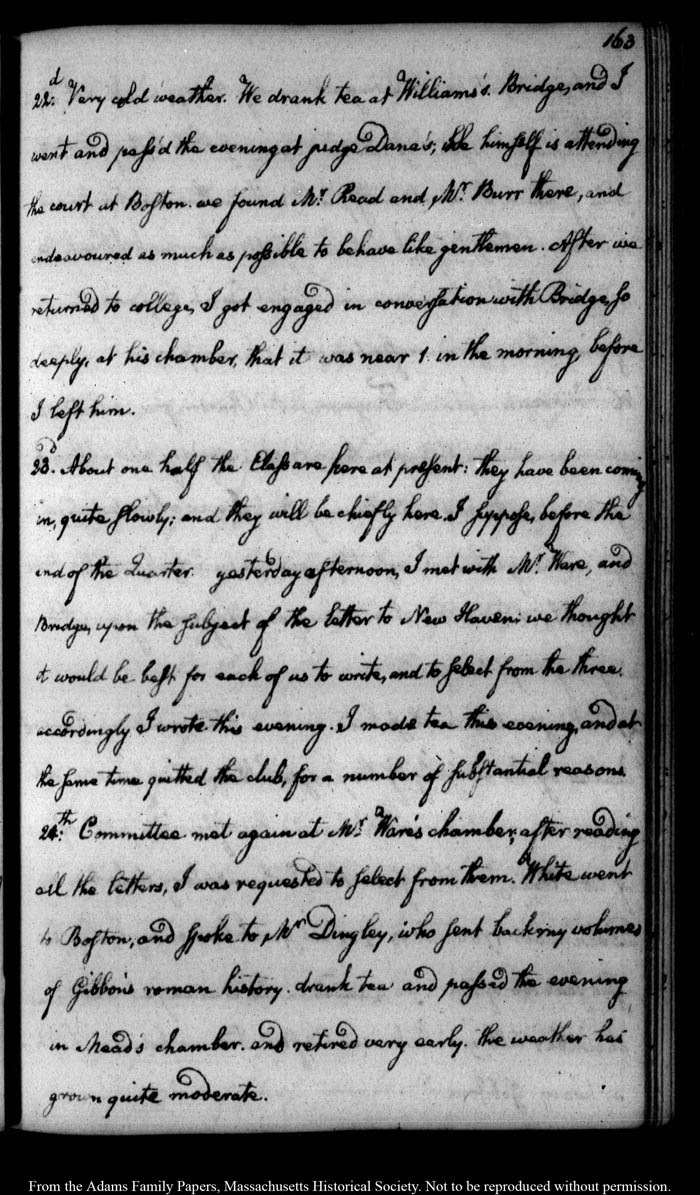 163
22.d Very cold weather. We drank tea at Williams's. Bridge, and I
went and pass'd the evening at judge Dana's; He himself is attending
the court at Boston. we found Mr. Read and Mr. Burr there, and
endeavoured as much as possible to behave like gentlemen. After we
returned to college, I got engaged in conversation with Bridge, so
deeply, at his chamber, that it was near 1. in the morning, before
I left him.
23.d About one half the Class are here at present: they have been coming
in, quite slowly; and they will be chiefly here I suppose, before the
end of the Quarter. yesterday afternoon, I met with Mr. Ware, and
Bridge, upon the subject of the letter to New Haven: we thought
it would be best for each of us to write, and to select from the three.
accordingly I wrote this evening. I made tea this evening, and at
the same time quitted the club, for a number of substantial reasons.
24.th Committee met again at Mr. Ware's chamber; after reading
all the letters, I was requested to select from them. White went
to Boston, and spoke to Mr. Dingley, who sent back my volumes
of Gibbon's roman history. drank tea and passed the evening
in Mead's chamber. and retired very early. the weather has
grown quite moderate.
From the Adams Family Papers, Massachusetts Historical Society. Not to be reproduced without permission.